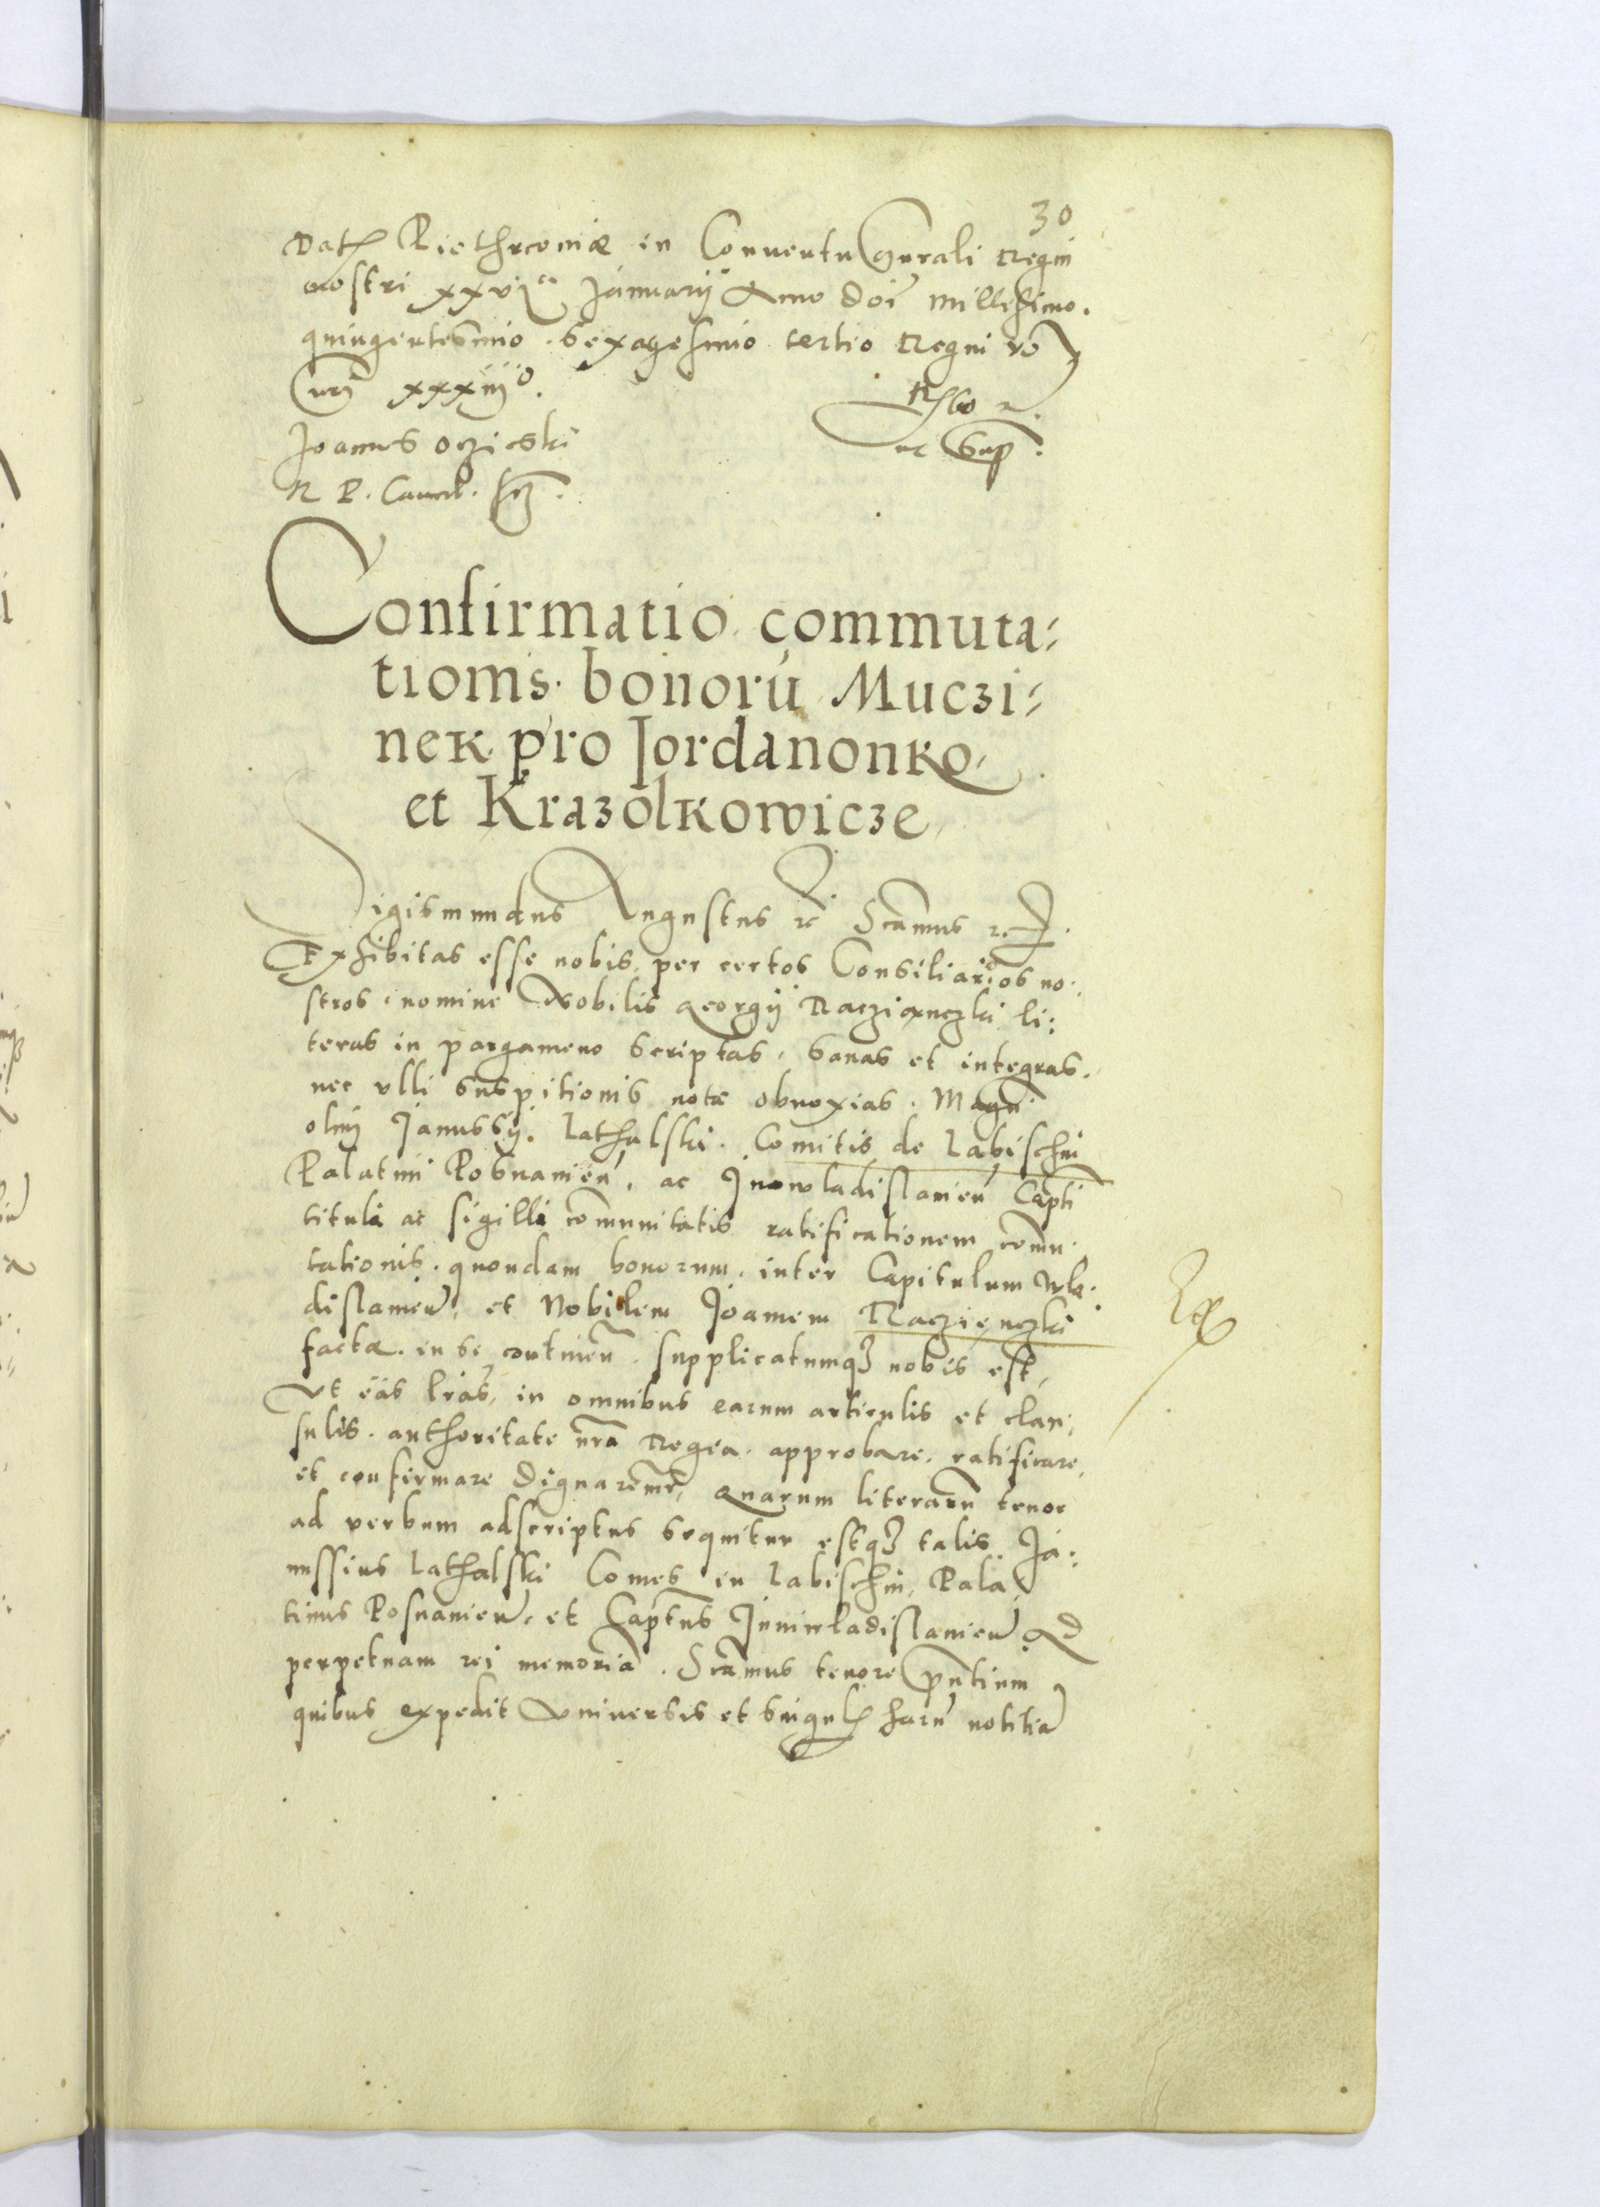 30
Dat Piethrcouiæ in Conuentu Gnrali Regni
nostri xxvi Januarij Anno doi millesimo.
quingentesimo. Sexagesimo tertio Regni vo
nri xxxiiij°.
Joannes Oczieski
R P. Cancel. ut Sup.
Confirmatio commuta-
tionis bonorū Muczi-
nek pro Jordanonko
et Krazolkowicze
Sigismundus Augustus rē Scimus
Exhibitas esse nobis per certos Consiliarios no-
stros nomine Nobilis Georgij Raczięnczki li-
teras in pargameno scriptas, sanas et integras.
nec ulli suspitionis notæ obnoxias. Magn
olim Janussij. Lathalski. Comitis de Labischin
Palatini Posnanien, ac Jnowladislauien Capti
tituli ac sigilli comunitatis ratificationem comu-
tationis. quondam bonorum. inter Capitulum Wla-
dislauien. et Nobilem Joannem Raczięnczki
factæ. in se continen. supplicatumq3 nobis est,
Vt eas lras, in omnibus earum articulis et clau-
sulis. authoritate nra Regia. approbare, ratificare,
et confirmare dignaremr, Quarum literarū tenor
ad verbum adscriptus sequitur estq3 talis. Ja-
nussius Lathalski Comes in Labischin, Pala
tinus Posnanien, et Captus Juniwladislauien Ad
perpetuam rei memoriā. Scimus tenore pntium
quibus expedit Vniuersis et singul harū notitiā